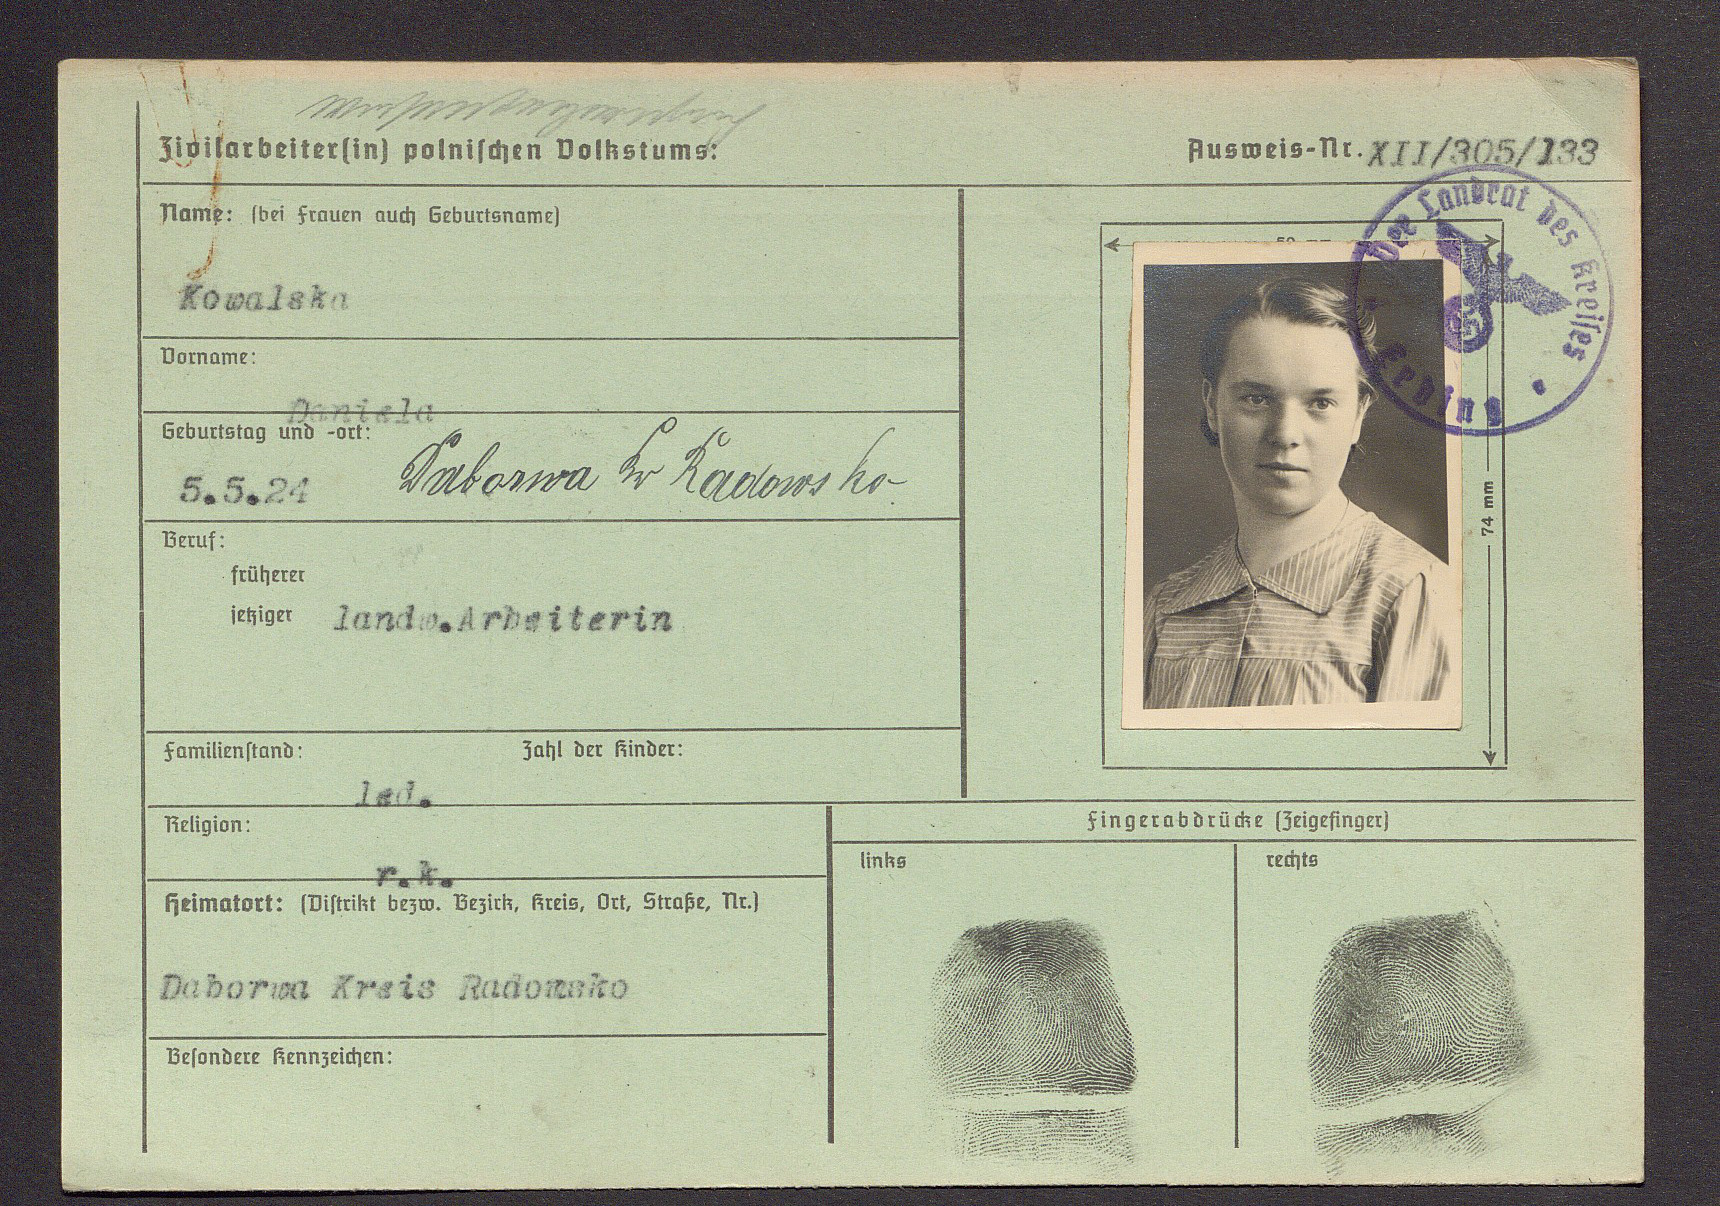 Zivilarbeiter(in) polnischen Volkstums:
Ausweis-Nr. XII/305/133
Name: (bei Frauen auch Geburtsname)
Kowalska
Vorname:
Daniela
Geburtstag und -ort:
5.5.24 Daborwa Kr Radowsko
Beruf:
früherer
jetziger landw.Arbeiterin
Familienstand: Zahl der Kinder:
led.
Religion:
r.k.
Heimatort: (Distrikt bezw. Bezirk, Kreis, Ort, Straße, Nr.)
Daborwa Kreis Radomsko
Besondere Kennzeichen:
74 mm
Der Landrat des Kreises
Fingerabdrücke (Zeigefinger)
links
rechts